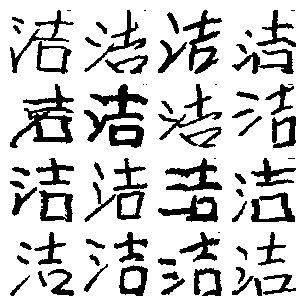 洁洁洁洁
洁洁洁洁
洁洁洁洁
洁洁洁洁